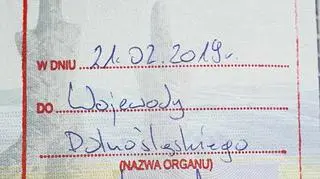 W DNIU 21.02.2019r.
DO Wojewody
Dolnośląskiego
(NAZWA ORGANU)